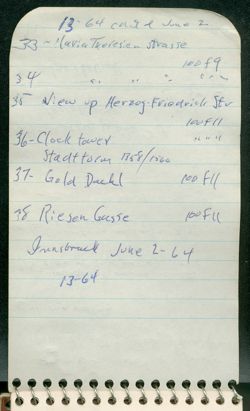 13-64 cont'd June 2
33-Maria Theresien Strasse
100 f9
34 " " " " " "
35 View up Herzog-Friedrich Str
100 f11
36-Clock tower " " "
Stadtturm 1358/1560
37- Gold Dachl 100 f11
38 Riesen Gasse 100 f11
Innsbruck June 2-64
13-64